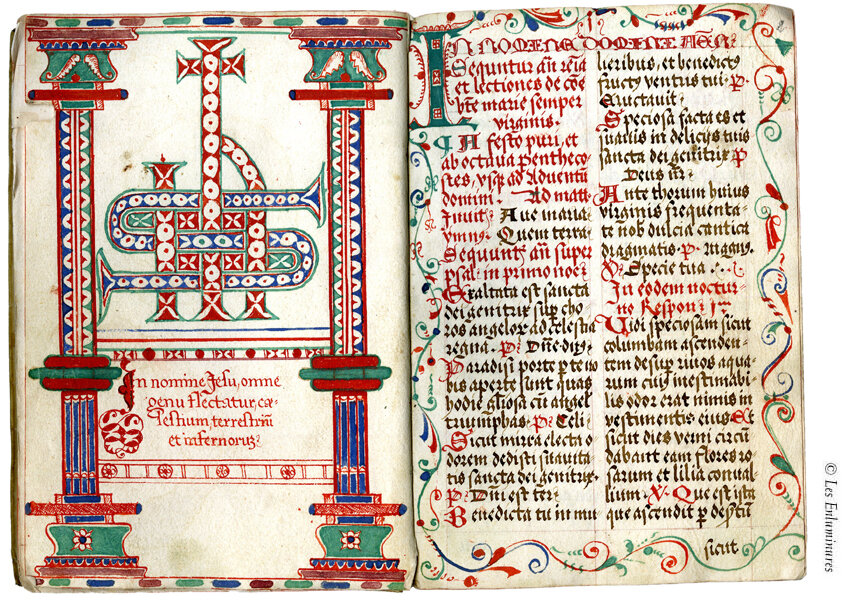 In nomine Jesu, omne
genu flectatur, cæ-
lestium, terrestriũ
et infernorũ?
IN NOMINE DOMINE AMEN
Sequuntur añ rñia
et lectiones de cõe
bte marie semper
virginis.
In festo puri, et
ab octava penthecos
stes, usq; ad Adventũ
domini. Ad matt
Invit. Ave maria
Imnꝰ. Quem terra
Sequunt añ super
psal. in primo noc.
Exaltata est sancta
dei genitrix sup cho
ros angelorꝫ ad celestia
regna. P. Dñe dñs
Paradisi porte p te no
bis aperte sunt quas
hodie gliosa cũ angel
triumphas. P. Celi
Sicut mirra electa o
dorem dedisti suavita
tis sancta dei genitrix.
P. Dñi est ter
Benedicta tu in mu
lieribus, et benedictꝰ
fructꝰ ventris tui. P.
Eructavit
Speciosa facta es et
suavis in delicijs tuis
sancta dei genitrix P
Deus nr
Ante thorum huius
virginis frequenta
te nob dulcia cantica
dragmatis. P. Magnꝰ
V. Specie tua
In eodem noctur-
no Respon. Im
Vidi speciosam sicut
columbam ascenden-
tem desuper rivos aqua
rum cuiꝰ inestimabi
lis odor erat nimis in
vestimentis eius Et
sicut dies verni circũ
dabant eam flores ro
sarum et lilia conval-
lium. V. Que est ista
que ascendit p desertũ
sicut
© Les Enluminures